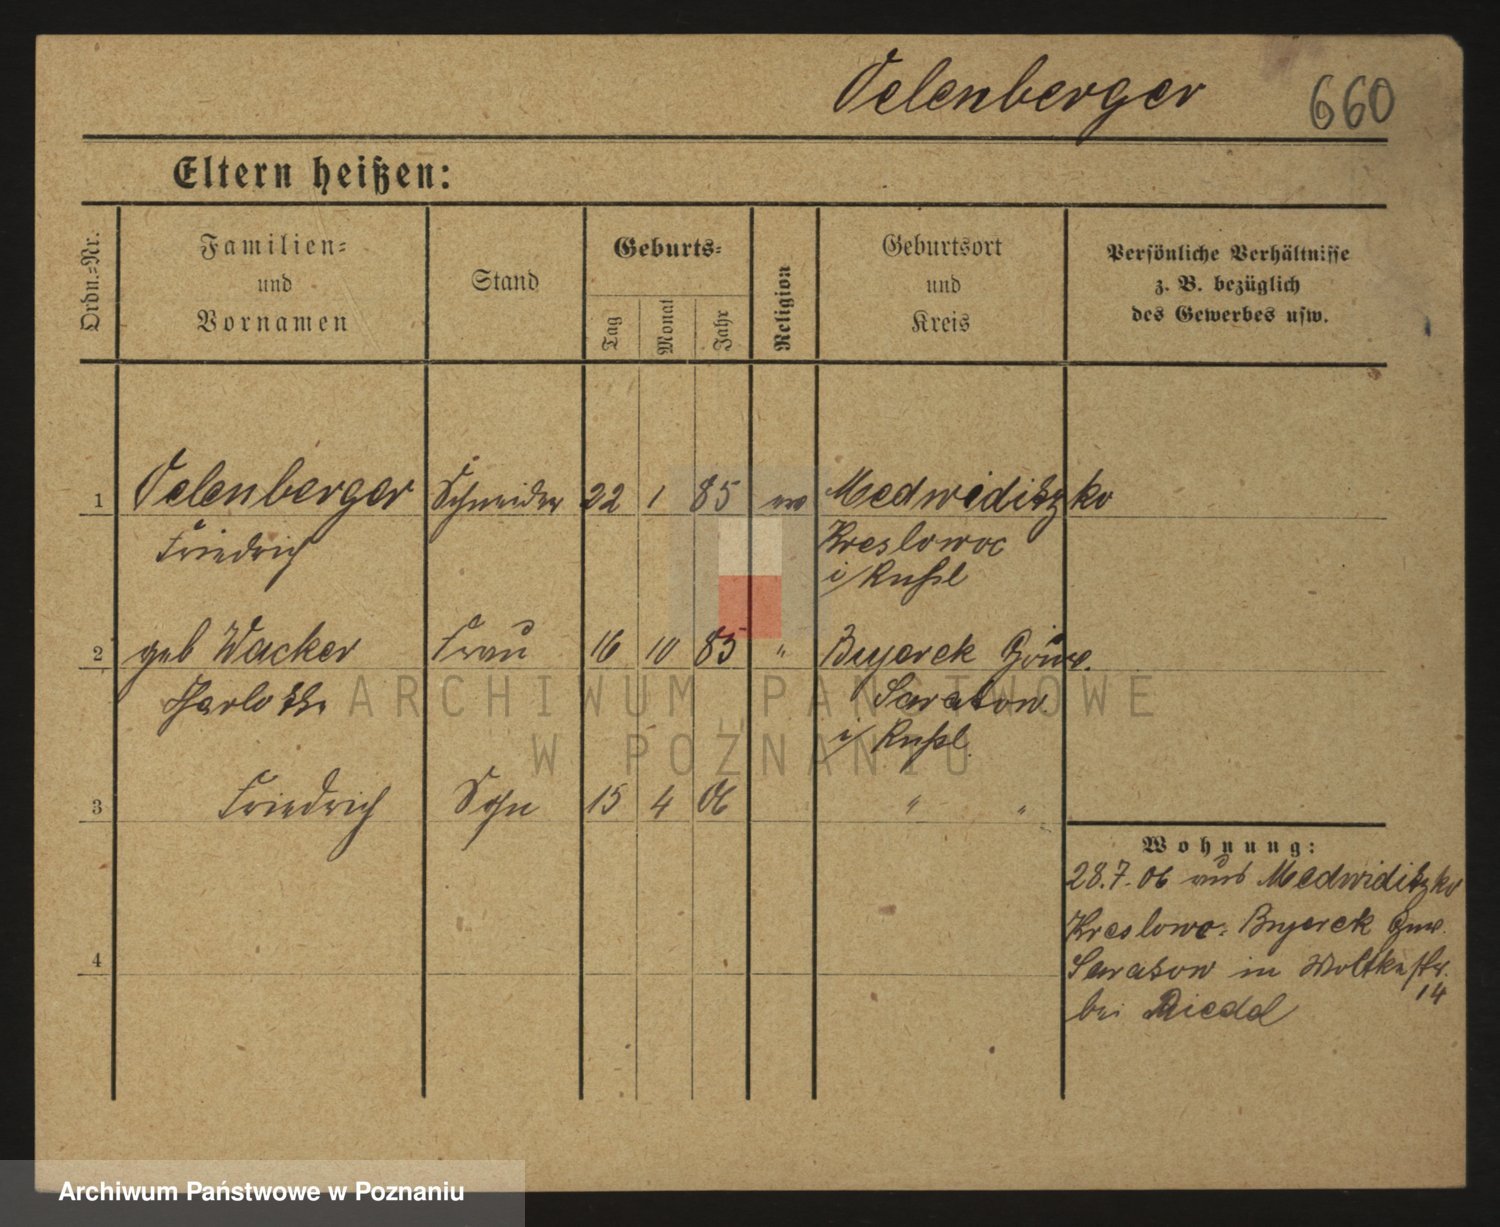 Oelenberger 660
Eltern heißen:
Ordn.=Nr.
Familien=
und
Vornamen
Stand
Geburts=
Tag
Monat
Jahr
Religion
Geburtsort
und
Kreis
Persönliche Verhältnisse
z. B. bezüglich
des Gewerbes usw.
1 Oelenberger Schneider 22 1 85 ev Medwiditzko
Friedrich Kreslowoc
i/ Rußl
2 geb Wacker Frau 16 10 85 " Buyerek Gouv.
Charlotte Saratow
i/ Rußl
3 Friedrich Sohn 15 4 06 " "
Wohnung:
28.7.06 aus Medwiditzko
Kreslowo: Buyerek Gouv.
4 Saratow in Moltkestr.
14
bei Riedel
ARCHIWUM PAŃSTWOWE
W POZNANIU
Archiwum Państwowe w Poznaniu